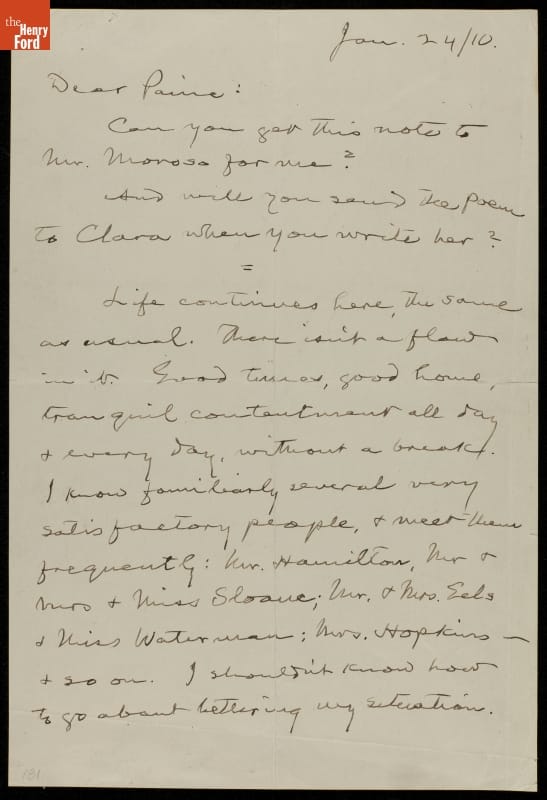 the
Henry
Ford
Jan. 24/10.
Dear Paine:
Can you get this note to
Mr. Moroso for me?
And will you send the poem
to Clara when you write her?
=
Life continues here, the same
as usual. There isn't a flaw
in it. Good times, good home,
tranquil contentment all day
& every day, without a break.
I know familiarly several very
satisfactory people, & meet them
frequently: Mr. Hamilton, Mr &
Mrs & Miss Sloane; Mr. & Mrs. Eels
& Miss Waterman; Mrs. Hopkins —
& so on. I shouldn't know how
to go about bettering my situation.
181